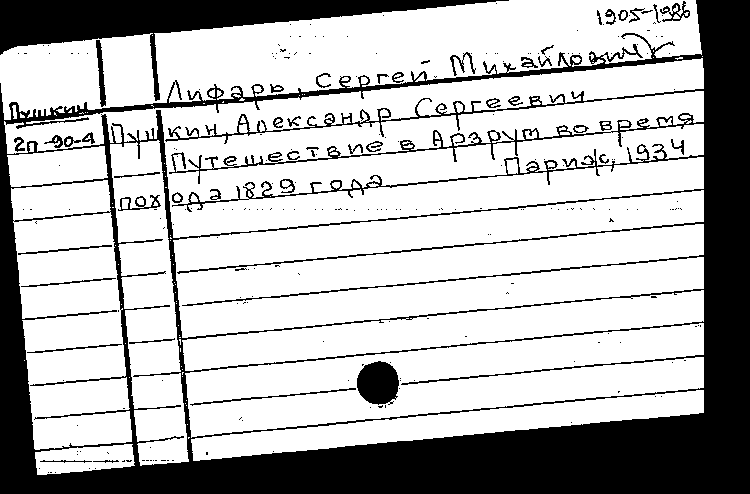 1905-1986
Лифарь, Сергей Михайлович
Пушкин
Пушкин, Александр Сергеевич
2п-90-4
Путешествие в Арзрум во время
похода 1829 года Париж, 1934